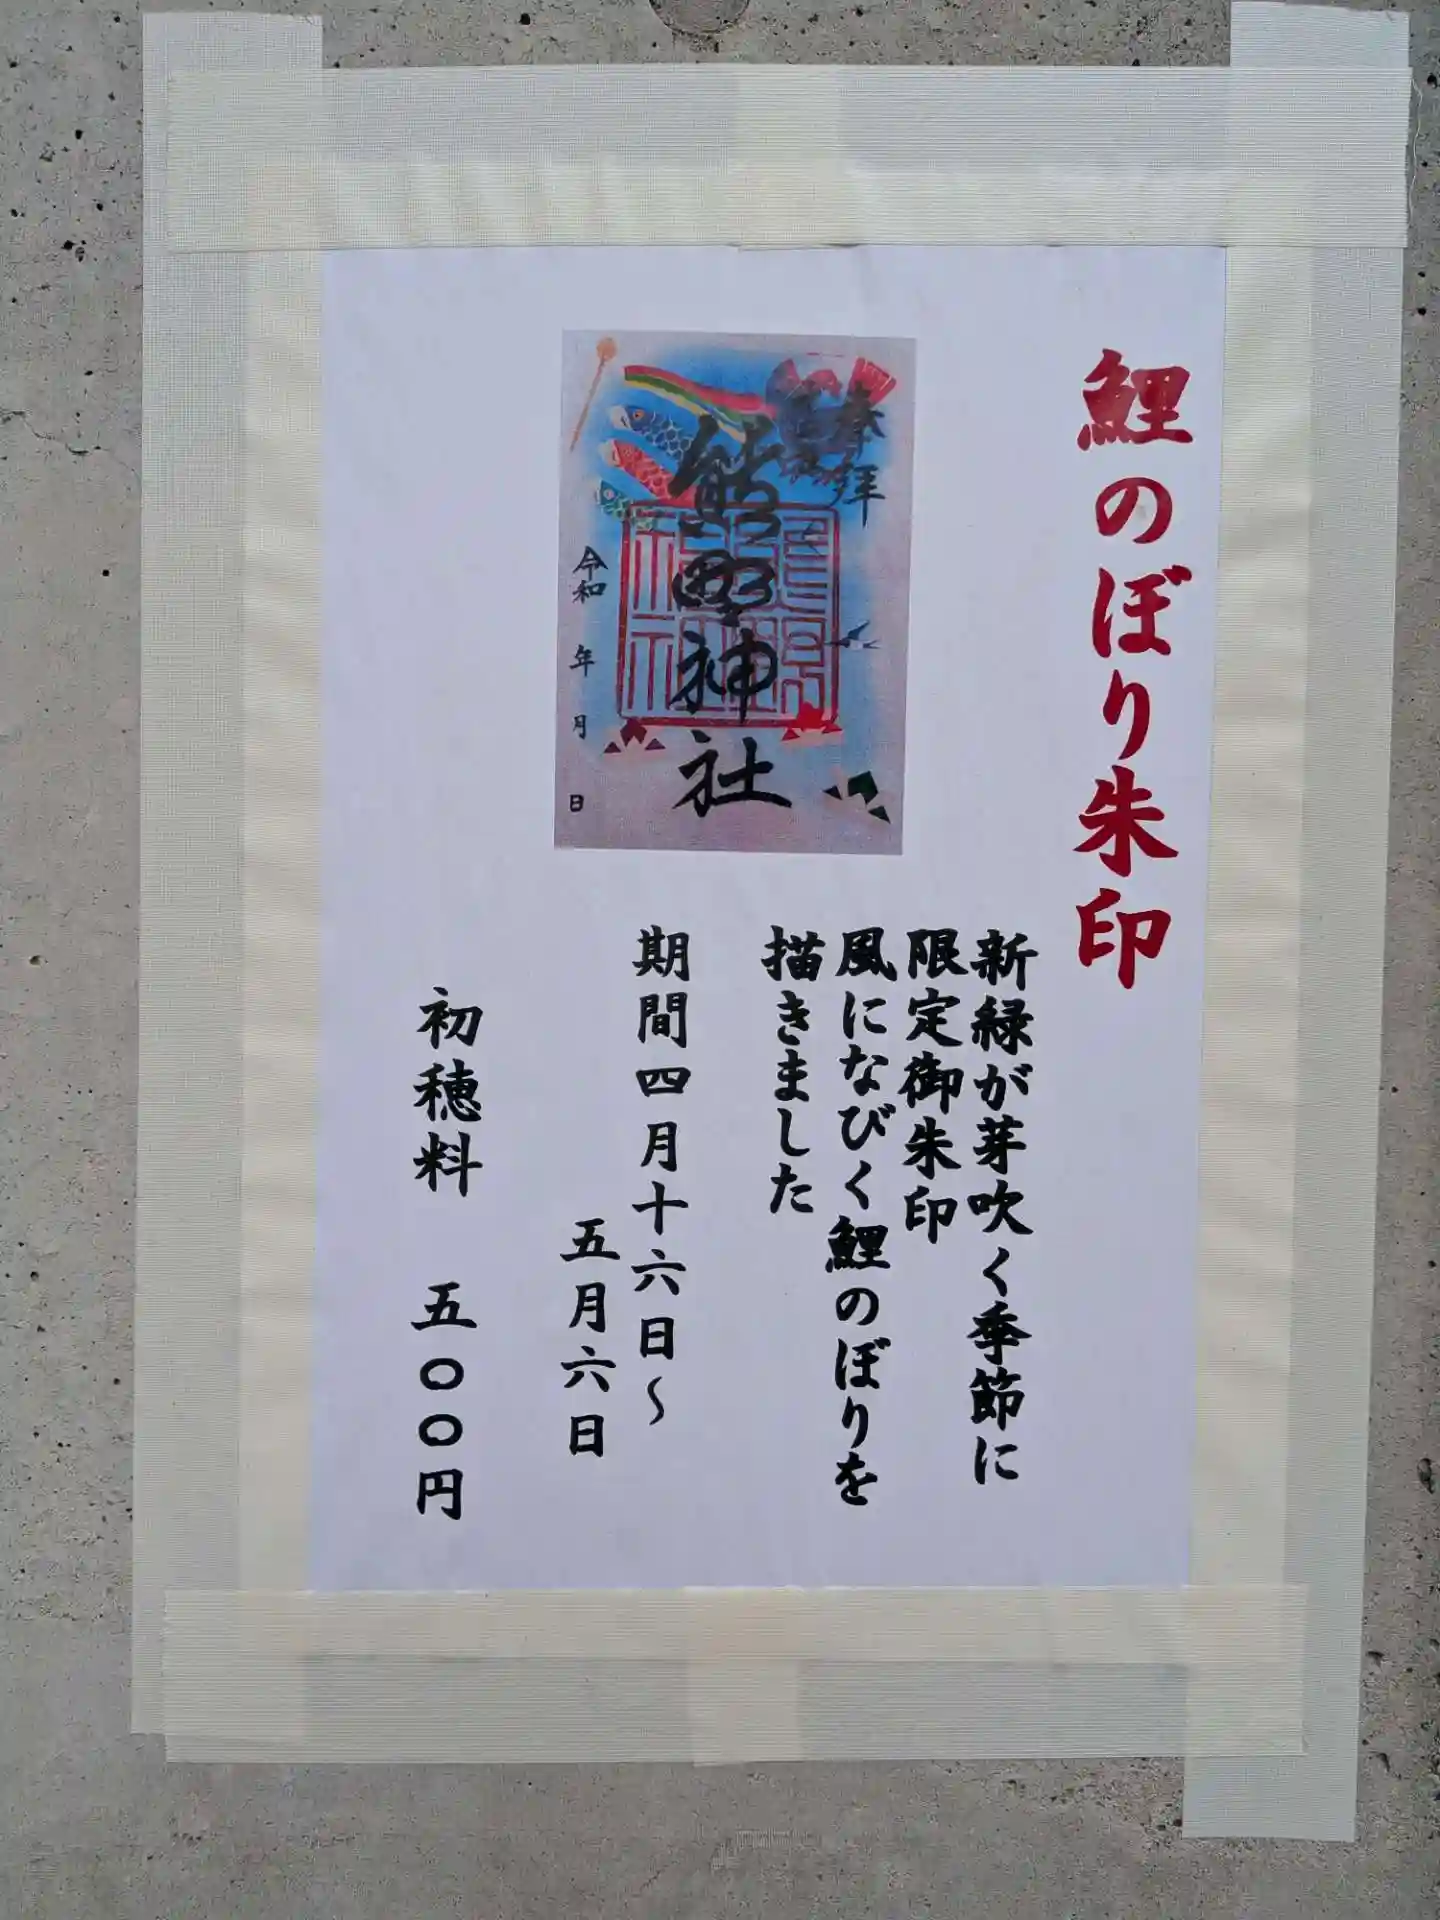 鯉のぼり朱印
奉拝
熊野神社
令和 年 月 日
新緑が芽吹く季節に
限定御朱印
風になびく鯉のぼりを
描きました
期間四月十六日～
五月六日
初穂料 五〇〇円